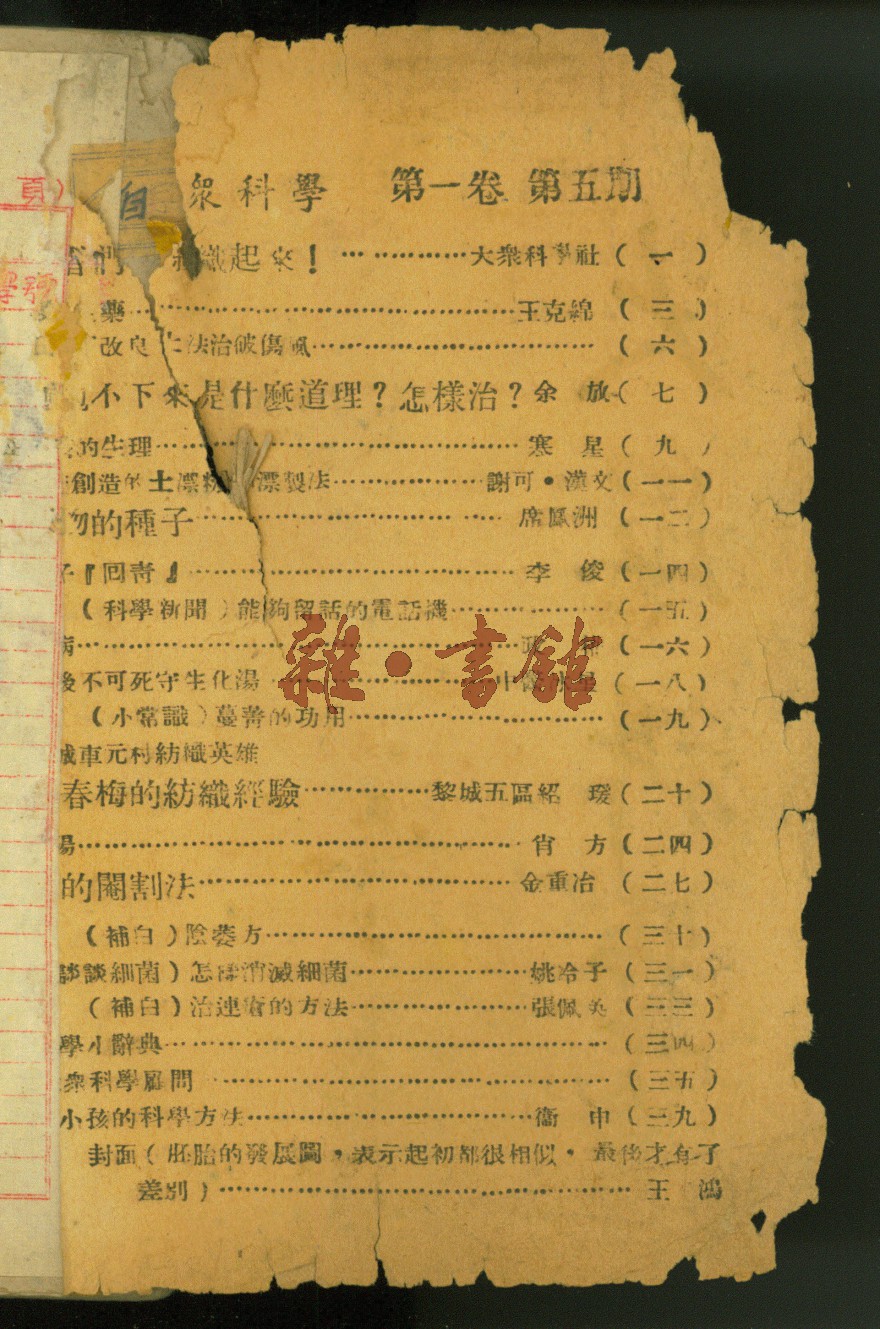 頁）
自
衆科學 第一卷 第五期
們 織起來！…………大衆科學社（一）
藥……王克綿（三）
改良 法治破傷風……（六）
不下來是什麽道理？怎樣治？余 放（七）
的生理……寒 星（九）
創造的土漂粉 漂製法……謝可・漢文（一一）
物的種子……席鳳洲（一二）
子『回青』……李 俊（一四）
（科學新聞）能夠留話的電話機……（一五）
病……（一六）
後不可死守生化湯……（一八）
（小常識）蔓菁的功用……（一九）
城車元村紡織英雄
春梅的紡織經驗……黎城五區紹 璦（二十）
湯……肖 方（二四）
的閹割法……金重冶（二七）
（補白）陰萎方……（三十）
談談細菌）怎樣消滅細菌……姚冷子（三一）
（補白）治連瘡的方法……張佩英（三三）
學小辭典……（三四）
衆科學顧問……（三五）
小孩的科學方法……衞 申（三九）
封面（胚胎的發展圖，表示起初都很相似，最後才有了
差別）……王 鴻
雜・書館